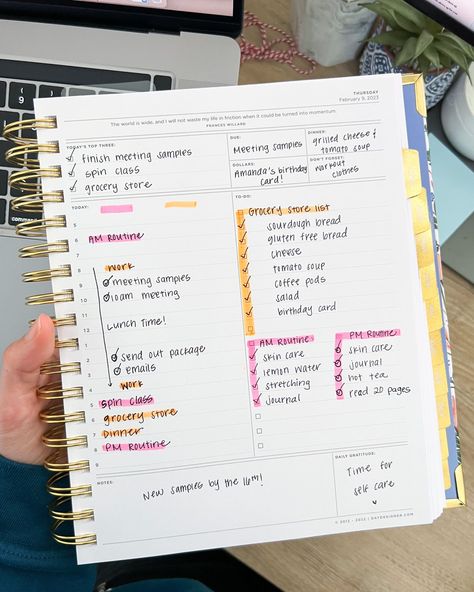 THURSDAY
February 9, 2023
The world is wide, and I will not waste my life in friction when it could be turned into momentum.
FRANCES WILLARD
TODAY'S TOP THREE:
finish meeting samples
spin class
grocery store
DUE:
Meeting samples
DINNER:
grilled cheese &
tomato soup
DOLLARS:
Amanda's birthday
card!
DON'T FORGET:
workout
clothes
TODAY:
5
6 AM Routine
7
8 work
9 meeting samples
10 10am meeting
11
12 Lunch Time!
1
2 send out package
3 emails
4 work
5 spin class
6 grocery store
7 Dinner
8 PM Routine
9
TO-DO:
Grocery store list
sourdough bread
gluten free bread
cheese
tomato soup
coffee pods
salad
birthday card
AM Routine
skin care
lemon water
stretching
journal
PM Routine
skin care
journal
hot tea
read 20 pages
NOTES:
New samples by the 16th!
DAILY GRATITUDE:
Time for
self care